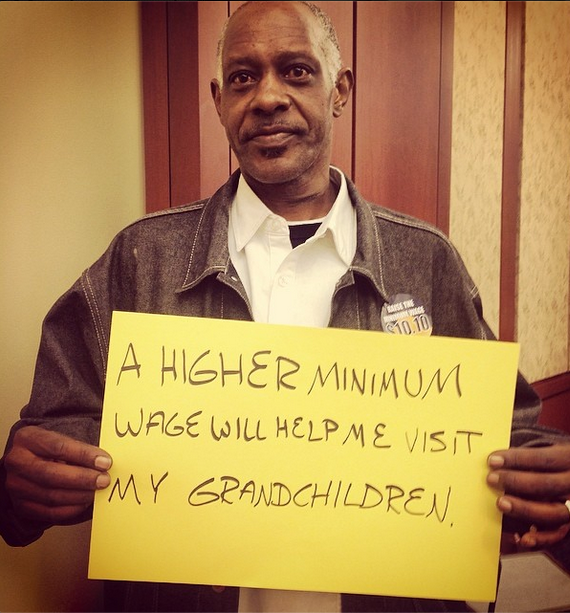 RAISE THE
MINIMUM WAGE
$10.10
A HIGHER MINIMUM
WAGE WILL HELP ME VISIT
MY GRANDCHILDREN.